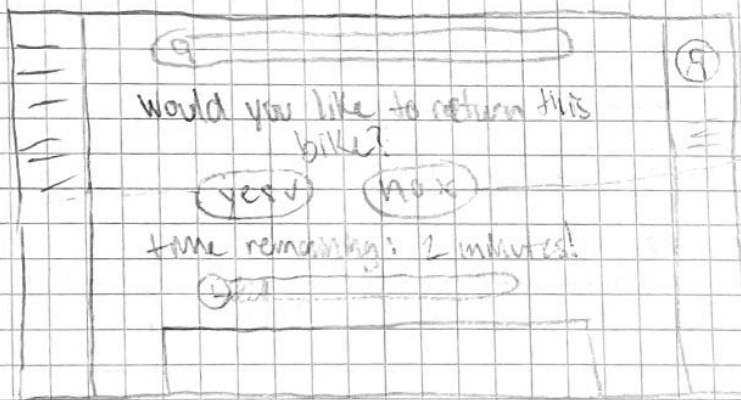 would you like to return this
bike?
yes ✓ no x
time remaining: 2 minutes!